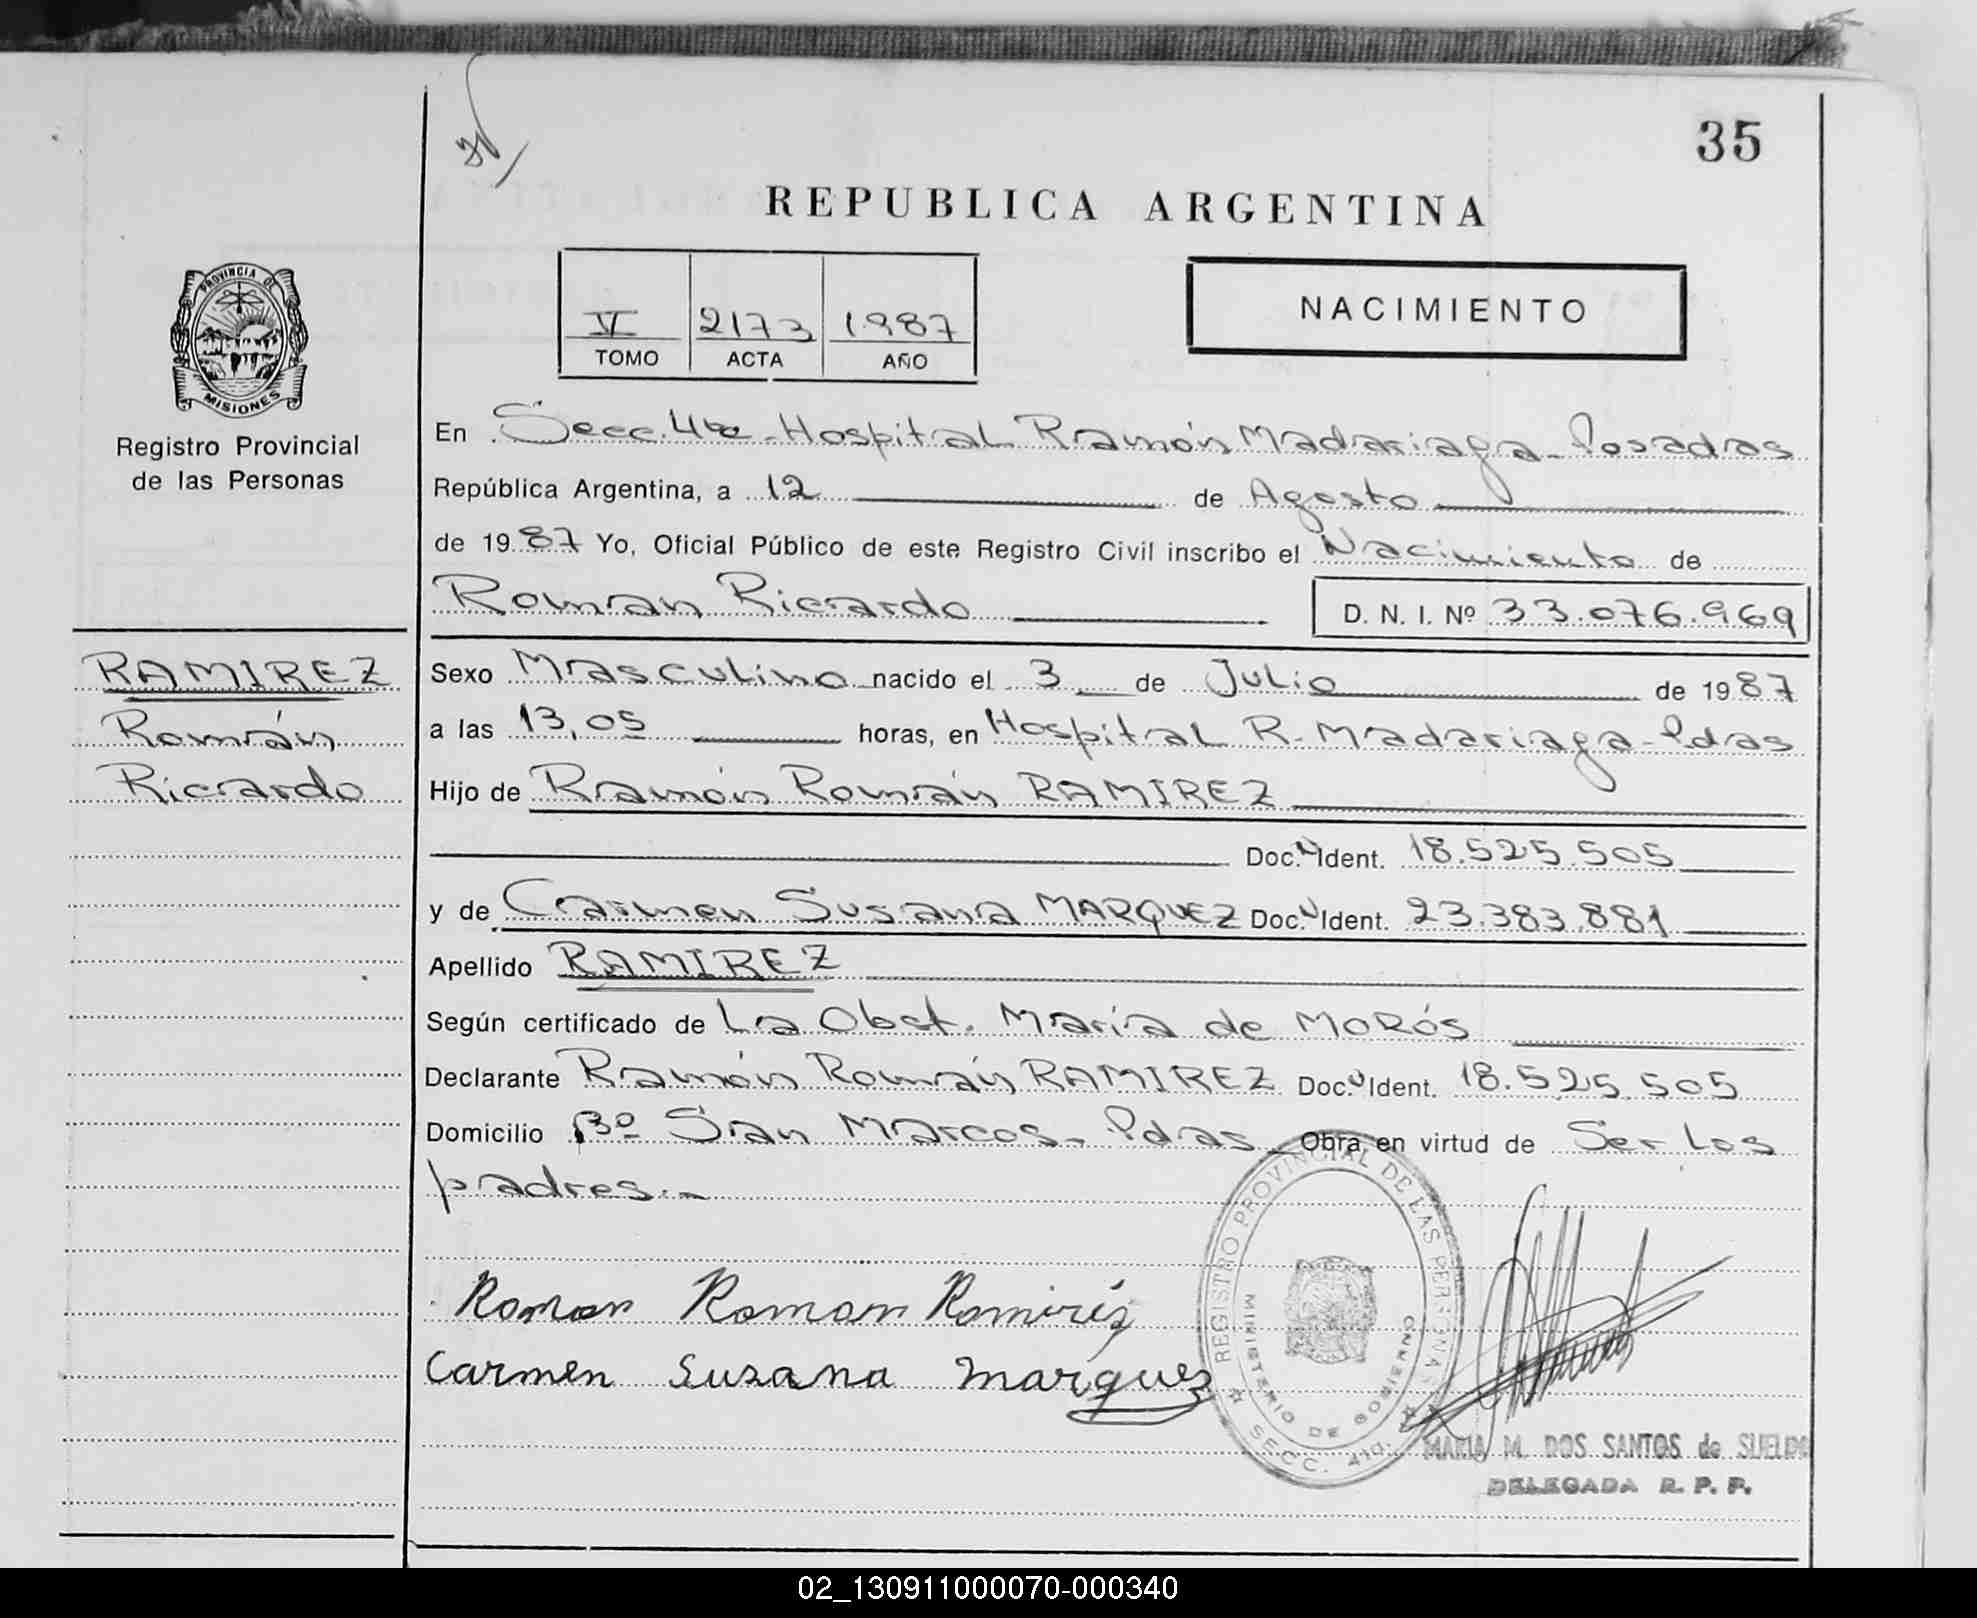 35
REPUBLICA ARGENTINA
V 2173 1987
TOMO ACTA AÑO
NACIMIENTO
PROVINCIA DE
MISIONES
Registro Provincial
de las Personas
RAMIREZ
Román
Ricardo
En Secc. 4ta - Hospital Ramón Madariaga - Posadas
República Argentina, a 12 de Agosto
de 1987 Yo, Oficial Público de este Registro Civil inscribo el Nacimiento de
Roman Ricardo D. N. I. Nº 33.076.969
Sexo Masculino nacido el 3 de Julio de 1987
a las 13,05 horas, en Hospital R. Madariaga - Pdas
Hijo de Ramón Román RAMIREZ
Doc. Ident. 18.525.505
y de Carmen Susana MARQUEZ Doc. Ident. 23.383.881
Apellido RAMIREZ
Según certificado de La Obst. María de MORÓS
Declarante Ramón Román RAMIREZ Doc. Ident. 18.525.505
Domicilio Bº San Marcos - Pdas - Obra en virtud de Ser los
padres.-
Roman Roman Ramiréz
Carmen Susana Marquez
REGISTRO PROVINCIAL DE LAS PERSONAS
MINISTERIO DE GOBIERNO
SECC. 4ta.
MARIA M. DOS SANTOS de SUELDO
DELEGADA R. P. P.
02_130911000070-000340